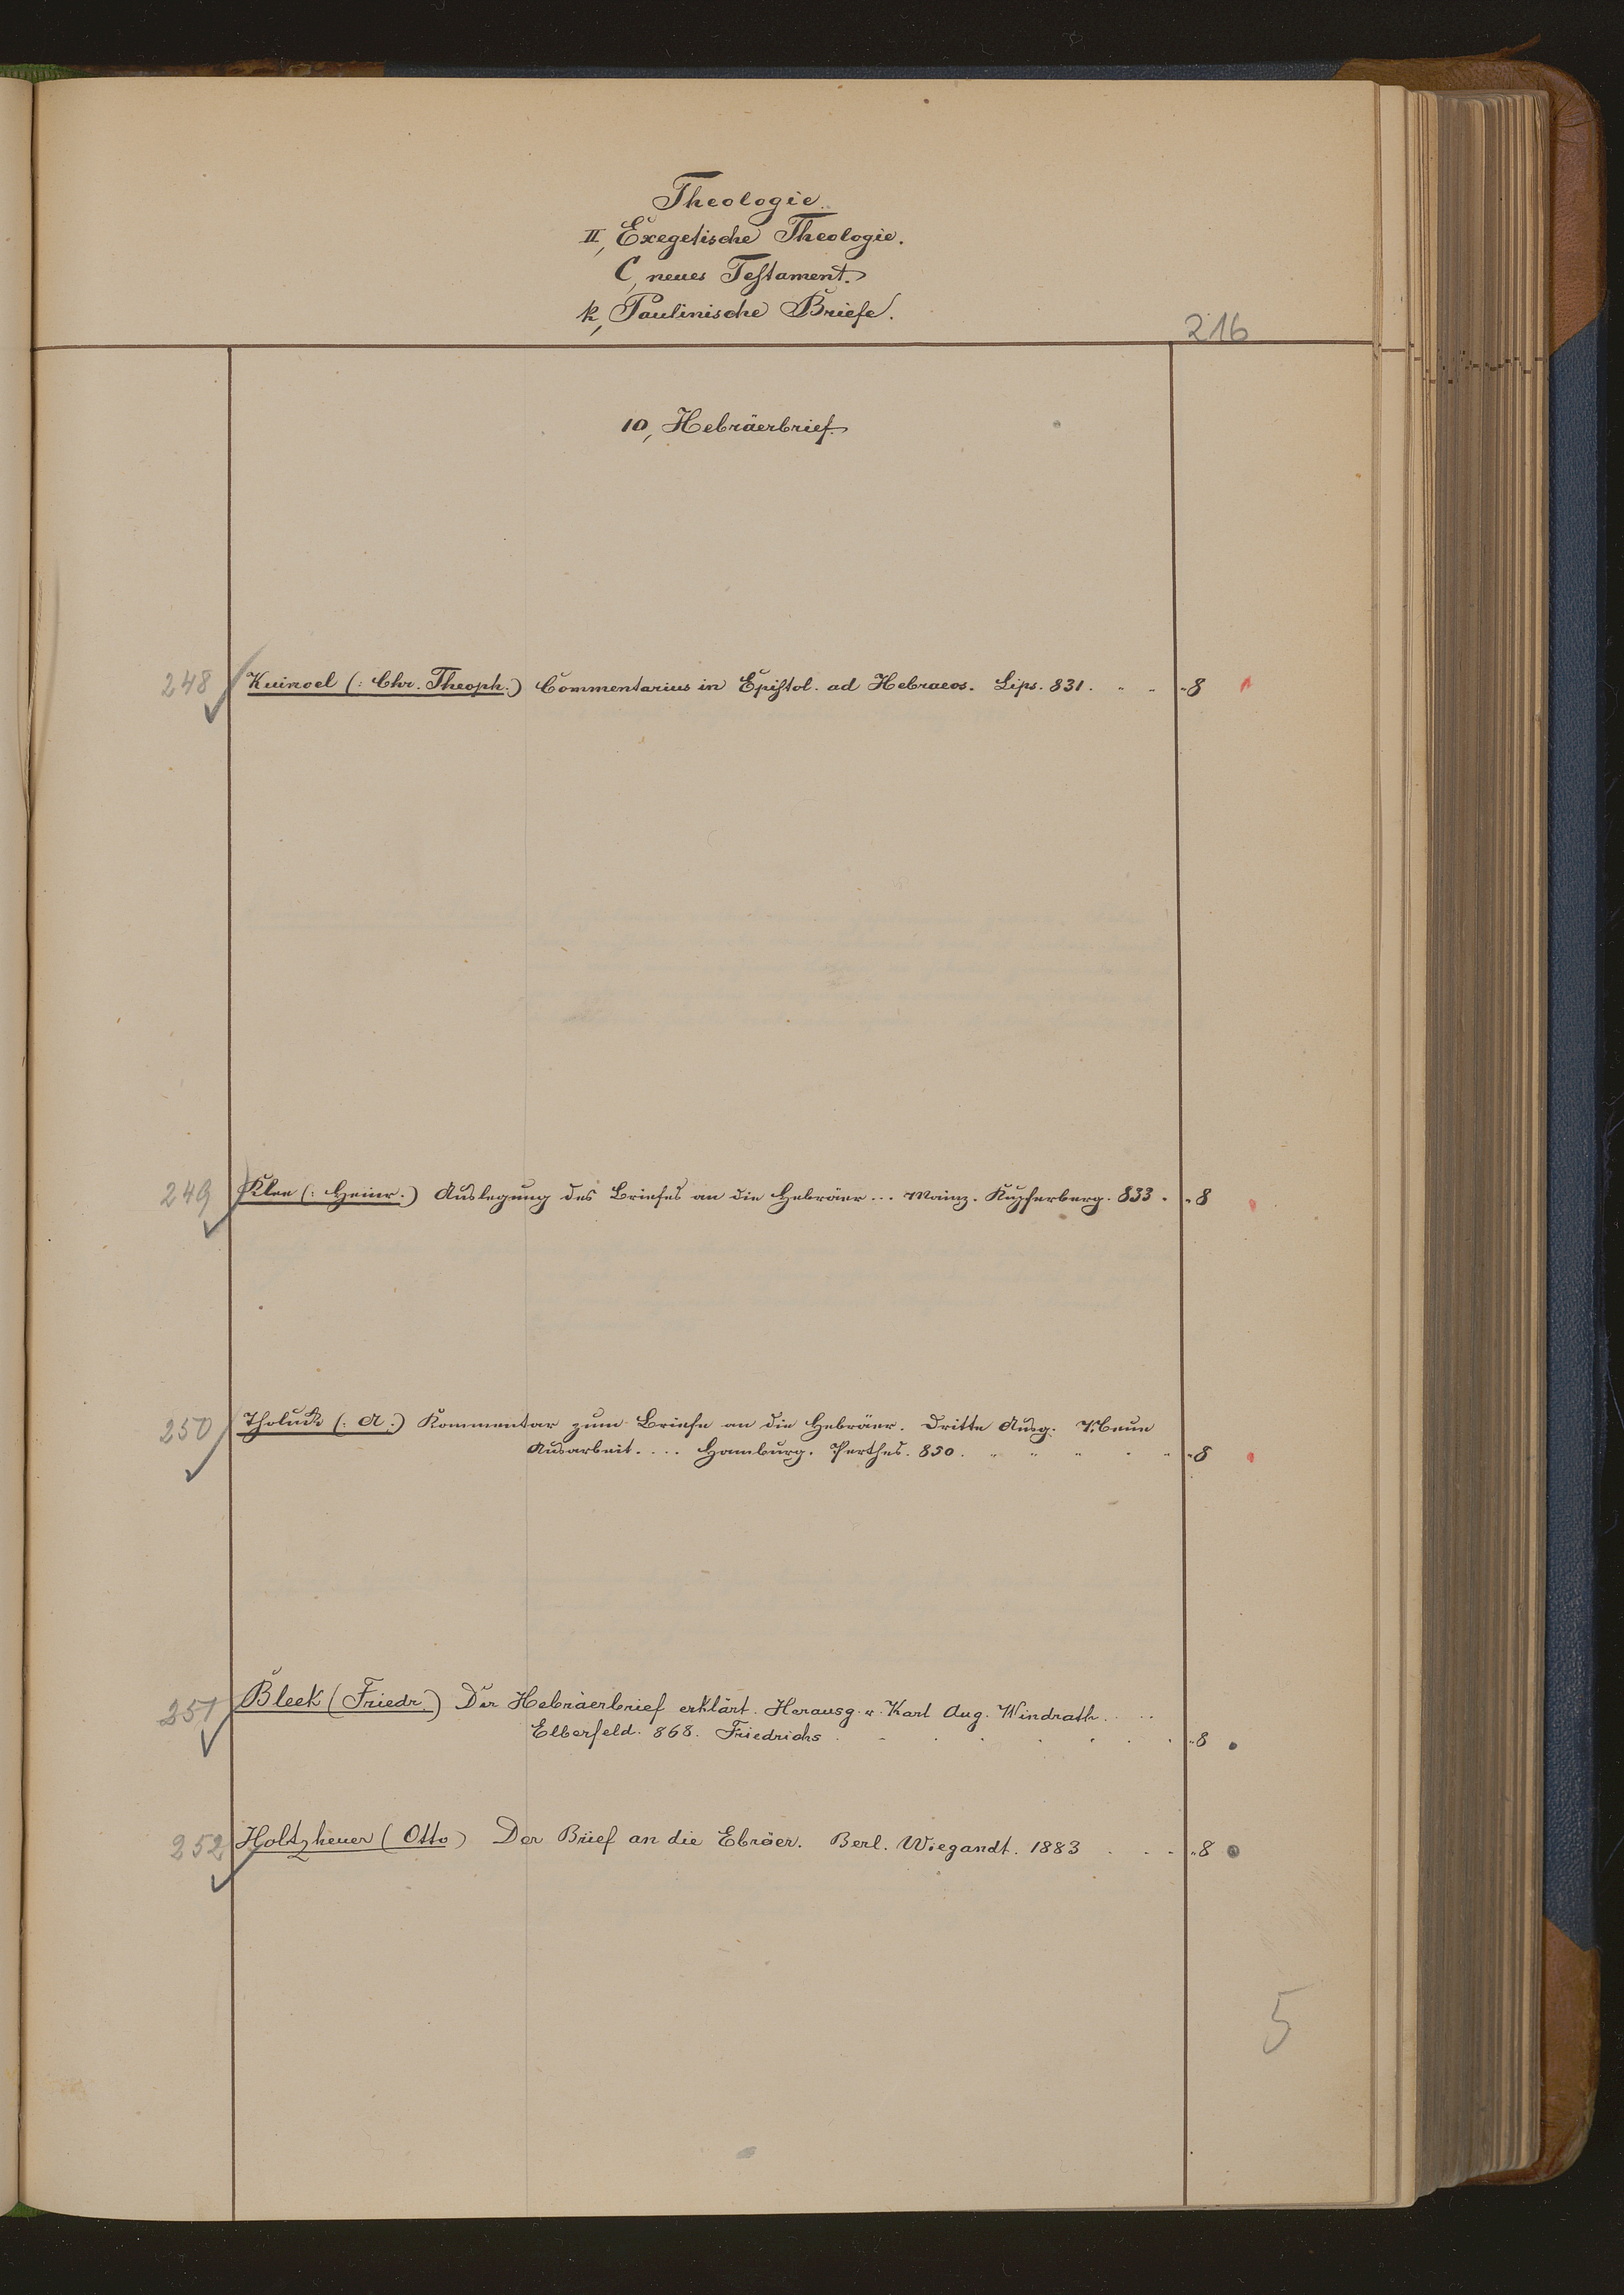 Theologie.
II, Exegetische Theologie.
C, neues Testament.
k, Paulinische Briefe.
216
10, Hebräerbrief.
248 Kuinoel (: Chr. Theoph.) Commentarius in Epistol. ad Hebraeos. Lips. 831. " " "8
249 Klee (: Heinr.) Auslegung des Briefes an die Hebräer ... Mainz. Kupferberg. 833. "8
250 Tholuck (: A.) Kommentar zum Briefe an die Hebräer. Dritte Ausg. Neue
Ausarbeit. ... Hamburg. Perthes. 850. " " " " " "8
251 Bleek (Friedr.) Der Hebräerbrief erklärt. Herausg. v. Karl Aug. Windrath ....
Elberfeld. 868. Friedrichs . . . . . . . "8
252 Holtzheuer (Otto) Der Brief an die Ebräer. Berl. Wiegandt. 1883 . . . "8
5